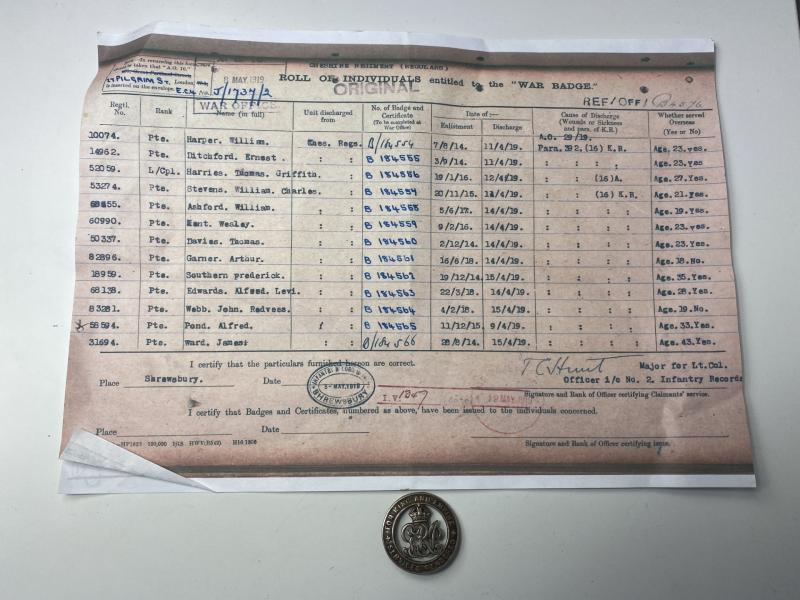 In returning this form
taken that "A.O. 16."
PILGRIM ST., London,
is inserted on the envelope. E.C.4
CHESHIRE REGIMENT (REGULARS)
8 MAY 1919
J/1737/2
ROLL OF INDIVIDUALS entitled to the "WAR BADGE."
ORIGINAL
WAR OFFICE
REF/OFF/
Regtl. No. Rank Name (in full) Unit discharged from No. of Badge and Certificate (To be completed at War Office) Date of :— Enlistment Discharge Cause of Discharge (Wounds or Sickness and para. of K.R.) Whether served Overseas (Yes or No)
A.O. 29/19.
10074. Pte. Harper. William. Ches. Regs. B/184554 7/8/14. 11/4/19. Para. 392. (16) K.R. Age. 23. yes.
14962. Pte. Ditchford. Ernest. : : B 184555 3/9/14. 11/4/19. : : : : Age. 23. yes.
52059. L/Cpl. Harries. Thomas. Griffith. : : B 184556 19/1/16. 12/4/19. : : (16) A. Age. 27. Yes.
53274. Pte. Stevens. William. Charles. : : B 184557 20/11/15. 14/4/19. : : (16) K.R. Age. 21. yes.
Pte. Ashford. William. : : B 184558 5/6/17. 14/4/19. : : : : Age. 19. Yes.
60990. Pte. Kent. Wesley. : : B 184559 9/2/16. 14/4/19. : : : : Age. 23. Yes.
50337. Pte. Davies. Thomas. : : B 184560 2/12/14. 14/4/19. : : : : Age. 23. Yes.
82896. Pte. Garner. Arthur. : : B 184561 16/6/18. 14/4/19. : : : : Age. 18. No.
18959. Pte. Southern frederick. : : B 184562 19/12/14. 15/4/19. : : : : Age. 35. Yes.
68138. Pte. Edwards. Alfred. Levi. : : B 184563 22/3/18. 14/4/19. : : : : Age. 28. Yes.
83281. Pte. Webb. John. Redvess. : : B 184564 4/2/18. 15/4/19. : : : : Age. 19. No
58594. Pte. Pond. Alfred. : : B 184565 11/12/15. 9/4/19. : : : : Age. 33. Yes.
31694. Pte. Ward. James. : : B/184566 28/8/14. 15/4/19. : : : : Age. 43. Yes.
I certify that the particulars furnished hereon are correct.
T C Hunt Major for Lt.Col.
Officer i/c No. 2. Infantry Records
Place Shrewsbury. Date
SHREWSBURY
Signature and Rank of Officer certifying Claimants' service.
I certify that Badges and Certificates, numbered as above, have been issued to the individuals concerned.
Place Date
Signature and Rank of Officer certifying issue.
FOR KING AND EMPIRE
SERVICES RENDERED